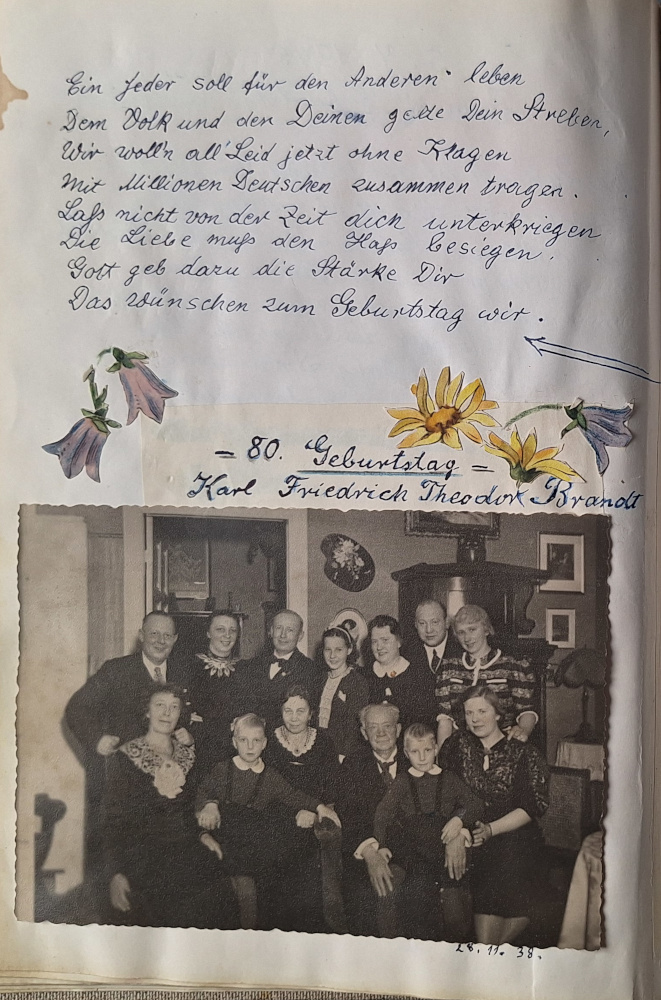 Ein jeder soll für den Anderen leben
Dem Volk und den Deinen gelte Dein Streben,
Wir woll'n all' Leid jetzt ohne Klagen
Mit Millionen Deutschen zusammen tragen.
Laß nicht von der Zeit dich unterkriegen
Die Liebe muß den Haß besiegen.
Gott geb dazu die Stärke Dir
Das wünschen zum Geburtstag wir.
= 80. Geburtstag =
Karl Friedrich Theodor Brandt
28. 11. 38.